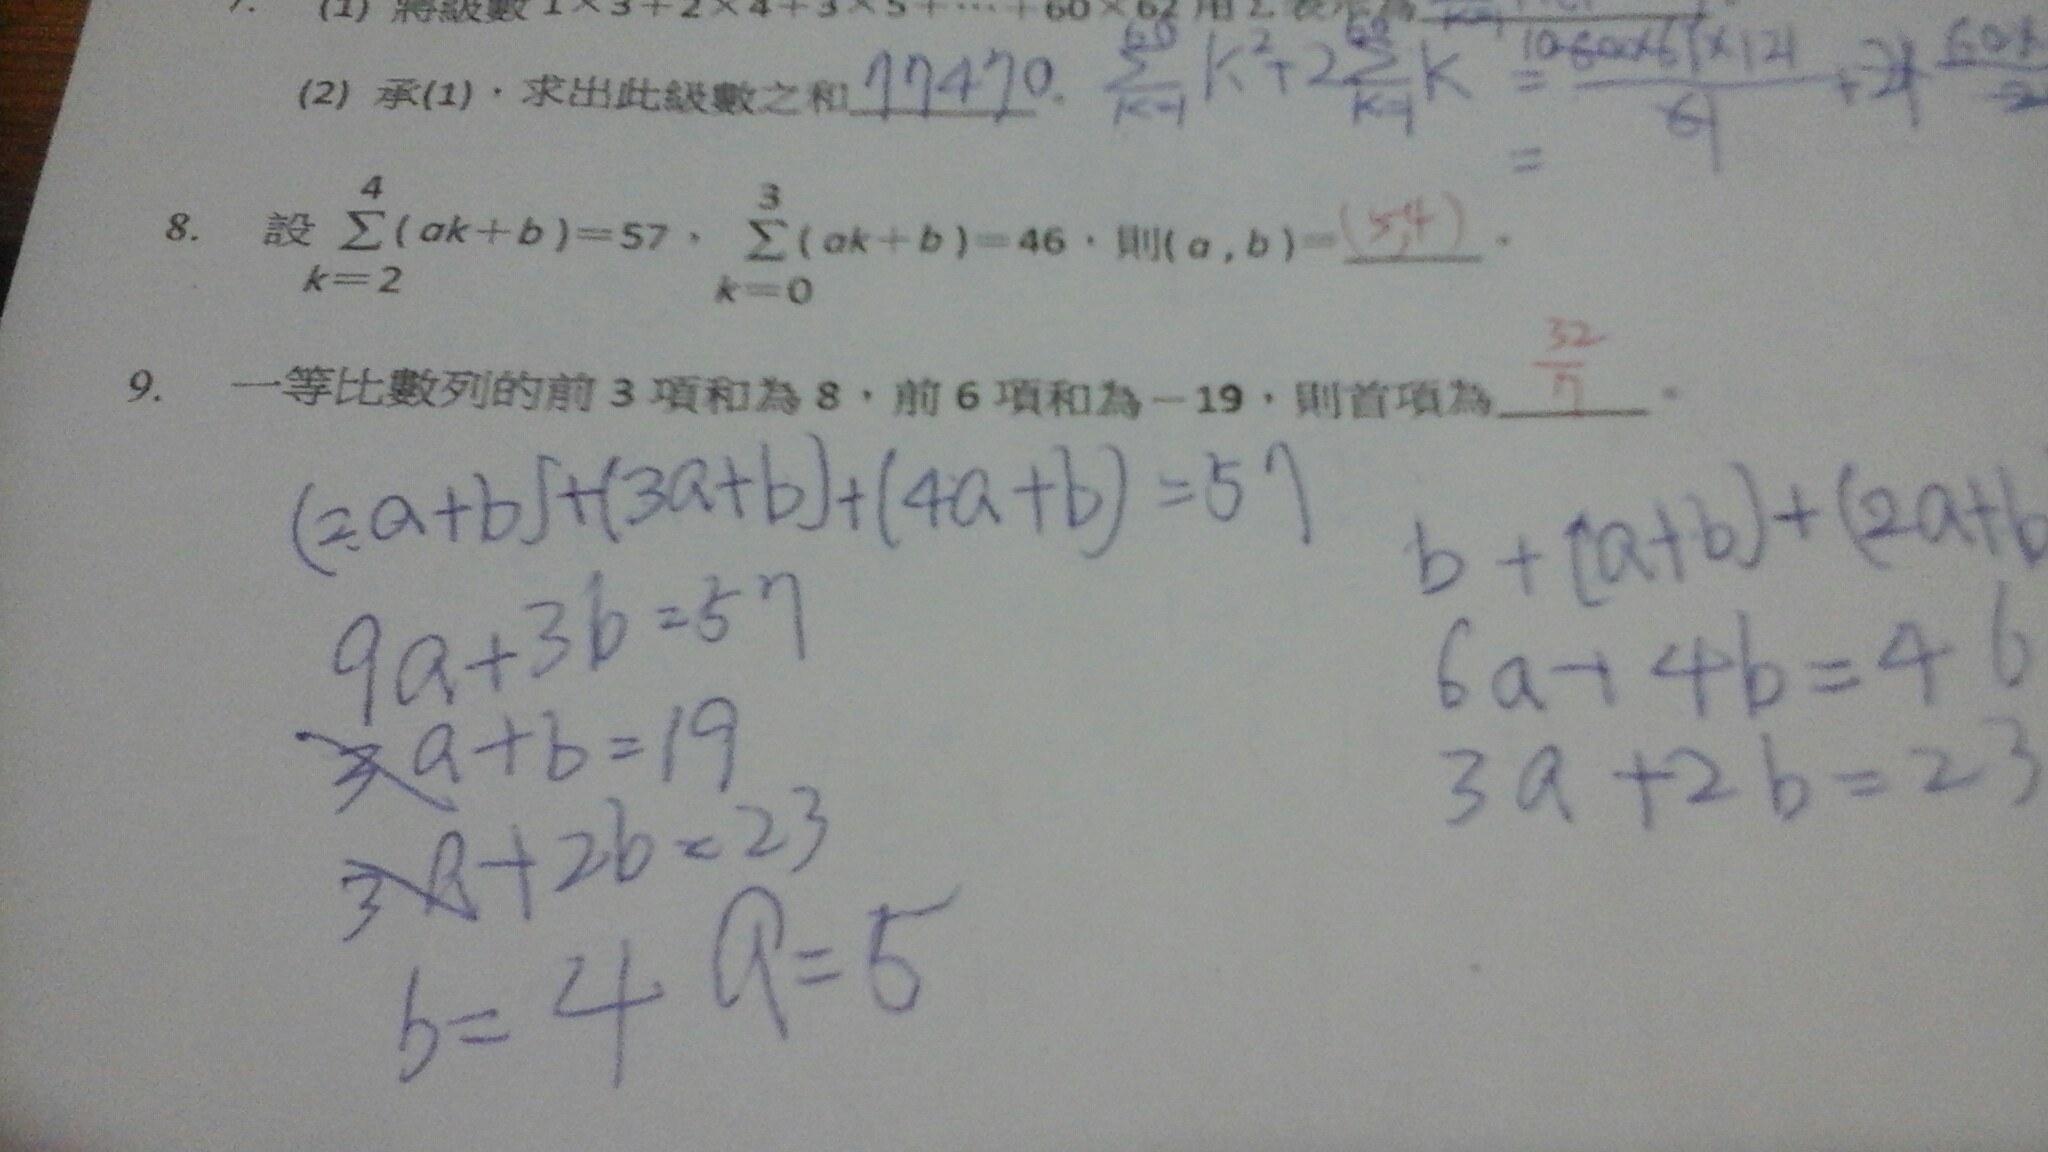 (1) 將級數1×3+2×4+3×5+⋯+60×62用Σ表示為
(2) 承(1),求出此級數之和77470. Σ_{k=1}^{60} k²+2Σ_{k=1}^{60} k =
=
8. 設 Σ_{k=2}^{4}(ak+b)=57,Σ_{k=0}^{3}(ak+b)=46,則(a,b)=(5,4)。
9. 一等比數列的前3項和為8,前6項和為−19,則首項為 32/7 。
(2a+b)+(3a+b)+(4a+b)=57
9a+3b=57
3a+b=19
3a+2b=23
b=4 a=5
b+(a+b)+(2a+b
6a+4b=46
3a+2b=23